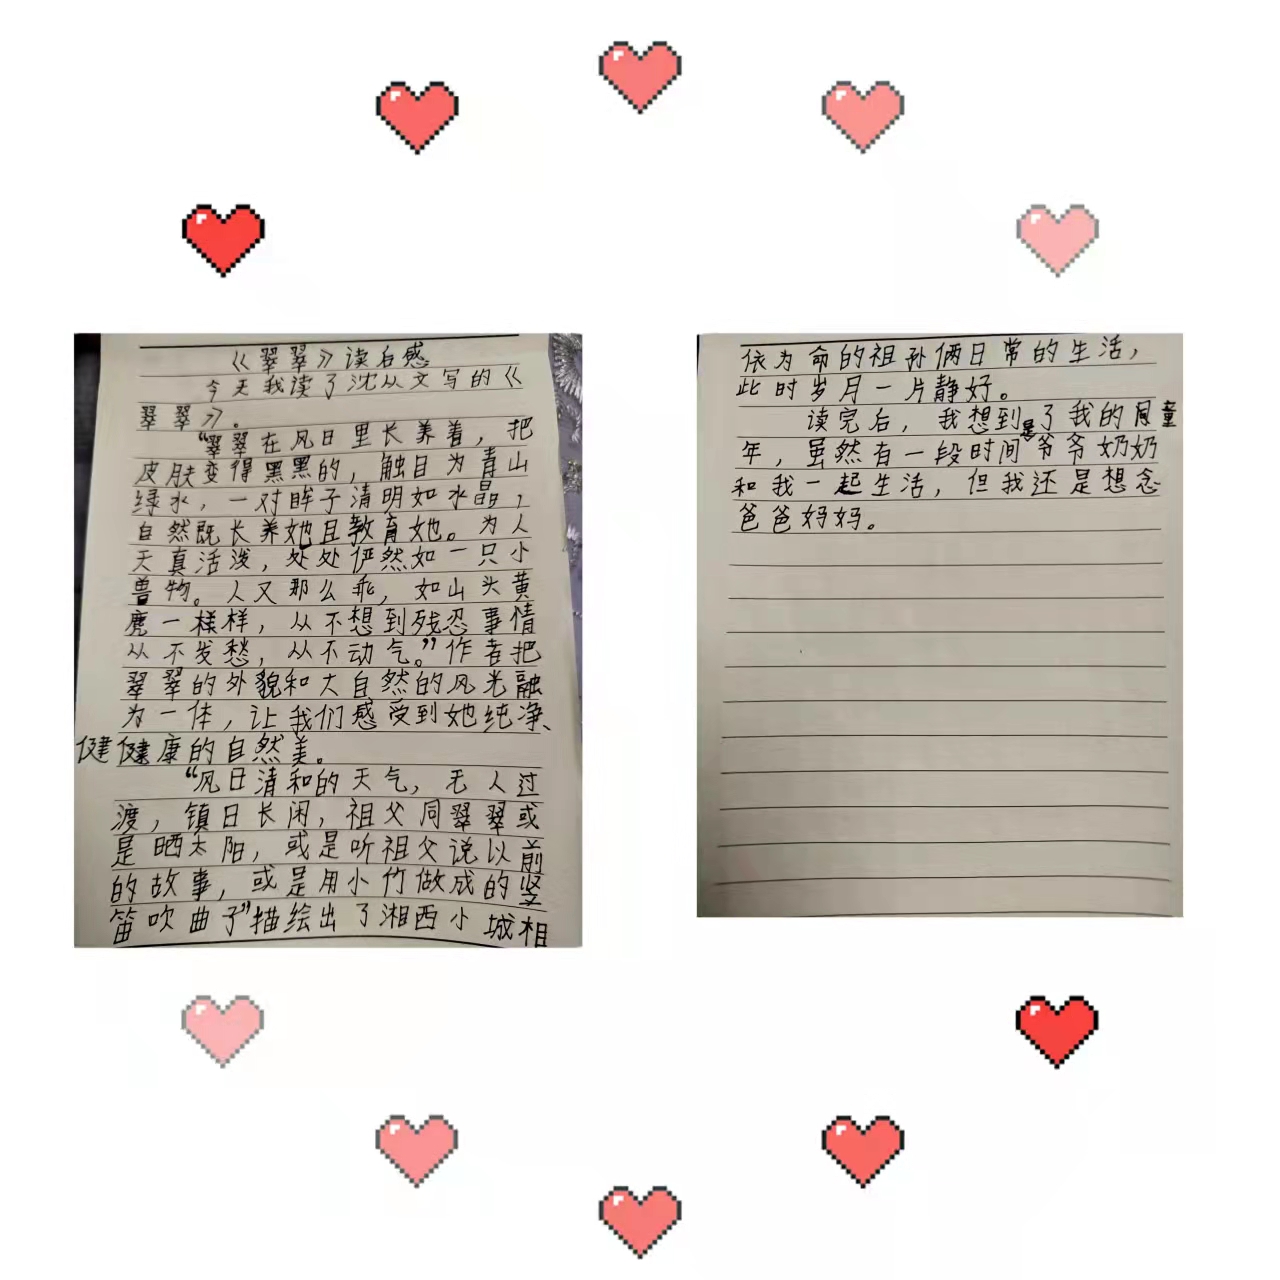 《翠翠》读后感
今天我读了沈从文写的《
翠翠》。
“翠翠在风日里长养着，把
皮肤变得黑黑的，触目为青山
绿水，一对眸子清明如水晶，
自然既长养她且教育她。为人
天真活泼，处处俨然如一只小
兽物。人又那么乖，如山头黄
麂一样样，从不想到残忍事情
从不发愁，从不动气。”作者把
翠翠的外貌和大自然的风光融
为一体，让我们感受到她纯净、
健健康的自然美。
“风日清和的天气，无人过
渡，镇日长闲，祖父同翠翠或
是晒太阳，或是听祖父说以前
的故事，或是用小竹做成的竖
笛吹曲子”描绘出了湘西小城相
依为命的祖孙俩日常的生活，
此时岁月一片静好。
读完后，我想到了我的童
年，虽然有一段时间是爷爷奶奶
和我一起生活，但我还是想念
爸爸妈妈。